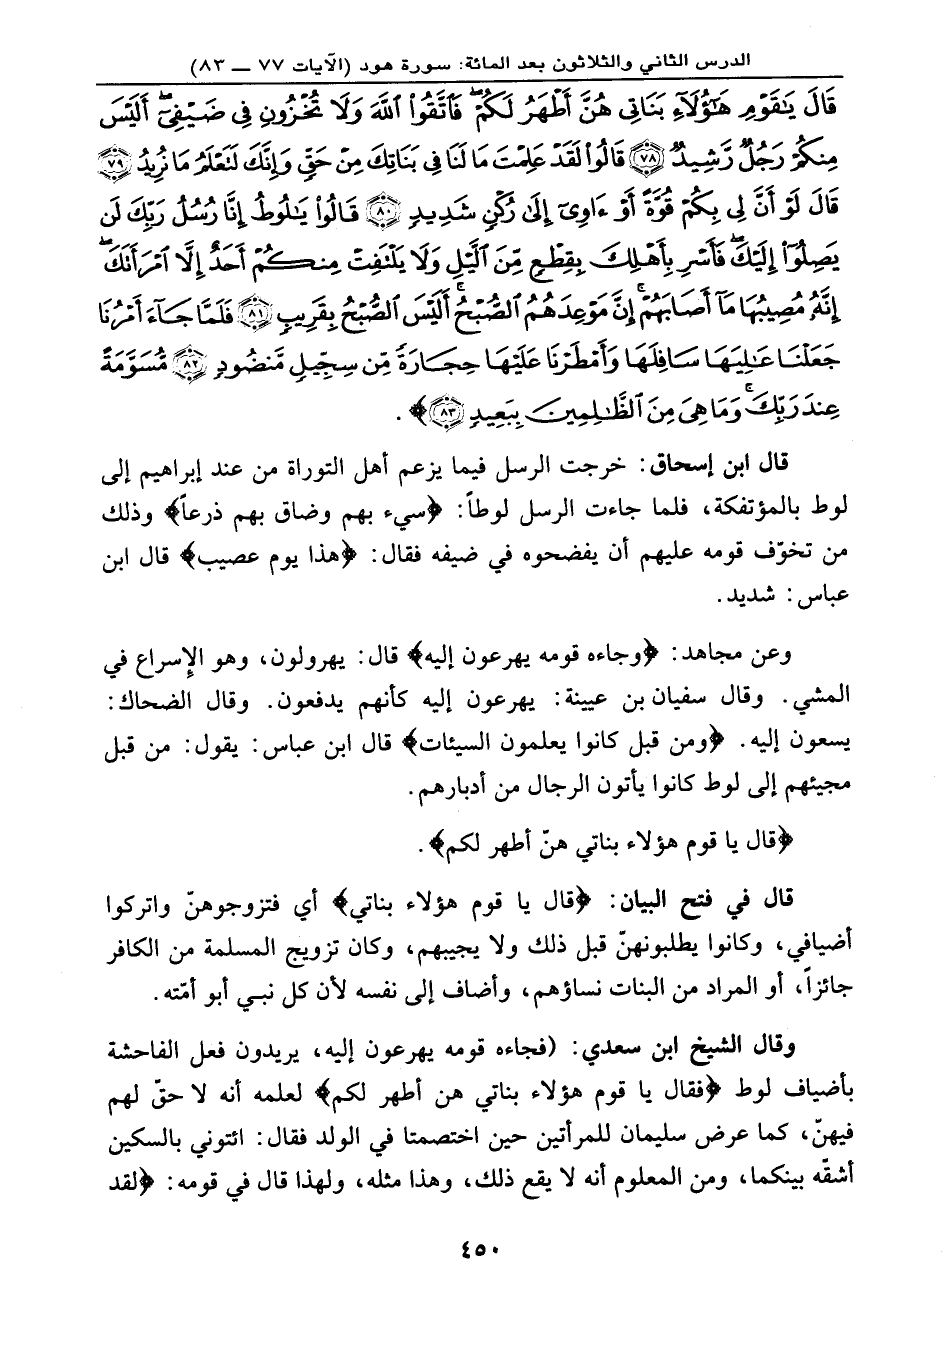 الدرس الثاني والثلاثون بعد المائة: سورة هود (الآيات ٧٧ ــ ٨٣)
قَالَ يَٰقَوْمِ هَٰٓؤُلَآءِ بَنَاتِى هُنَّ أَطْهَرُ لَكُمْ ۖ فَٱتَّقُوا۟ ٱللَّهَ وَلَا تُخْزُونِ فِى ضَيْفِىٓ ۖ أَلَيْسَ
مِنكُمْ رَجُلٌ رَّشِيدٌ ﴿٧٨﴾ قَالُوا۟ لَقَدْ عَلِمْتَ مَا لَنَا فِى بَنَاتِكَ مِنْ حَقٍّ وَإِنَّكَ لَتَعْلَمُ مَا نُرِيدُ ﴿٧٩﴾
قَالَ لَوْ أَنَّ لِى بِكُمْ قُوَّةً أَوْ ءَاوِىٓ إِلَىٰ رُكْنٍ شَدِيدٍ ﴿٨٠﴾ قَالُوا۟ يَٰلُوطُ إِنَّا رُسُلُ رَبِّكَ لَن
يَصِلُوٓا۟ إِلَيْكَ ۖ فَأَسْرِ بِأَهْلِكَ بِقِطْعٍ مِّنَ ٱلَّيْلِ وَلَا يَلْتَفِتْ مِنكُمْ أَحَدٌ إِلَّا ٱمْرَأَتَكَ ۖ
إِنَّهُۥ مُصِيبُهَا مَآ أَصَابَهُمْ ۚ إِنَّ مَوْعِدَهُمُ ٱلصُّبْحُ ۚ أَلَيْسَ ٱلصُّبْحُ بِقَرِيبٍ ﴿٨١﴾ فَلَمَّا جَآءَ أَمْرُنَا
جَعَلْنَا عَٰلِيَهَا سَافِلَهَا وَأَمْطَرْنَا عَلَيْهَا حِجَارَةً مِّن سِجِّيلٍ مَّنضُودٍ ﴿٨٢﴾ مُّسَوَّمَةً
عِندَ رَبِّكَ ۖ وَمَا هِىَ مِنَ ٱلظَّٰلِمِينَ بِبَعِيدٍ ﴿٨٣﴾﴾ .
قال ابن إسحاق: خرجت الرسل فيما يزعم أهل التوراة من عند إبراهيم إلى
لوط بالمؤتفكة، فلما جاءت الرسل لوطاً: ﴿سيء بهم وضاق بهم ذرعاً﴾ وذلك
من تخوّف قومه عليهم أن يفضحوه في ضيفه فقال: ﴿هذا يوم عصيب﴾ قال ابن
عباس: شديد.
وعن مجاهد: ﴿وجاءه قومه يهرعون إليه﴾ قال: يهرولون، وهو الإسراع في
المشي. وقال سفيان بن عيينة: يهرعون إليه كأنهم يدفعون. وقال الضحاك:
يسعون إليه. ﴿ومن قبل كانوا يعلمون السيئات﴾ قال ابن عباس: يقول: من قبل
مجيئهم إلى لوط كانوا يأتون الرجال من أدبارهم.
﴿قال يا قوم هؤلاء بناتي هنّ أطهر لكم﴾.
قال في فتح البيان: ﴿قال يا قوم هؤلاء بناتي﴾ أي فتزوجوهنّ واتركوا
أضيافي، وكانوا يطلبونهنّ قبل ذلك ولا يجيبهم، وكان تزويج المسلمة من الكافر
جائزاً، أو المراد من البنات نساؤهم، وأضاف إلى نفسه لأن كل نبي أبو أمّته.
وقال الشيخ ابن سعدي: (فجاءه قومه يهرعون إليه، يريدون فعل الفاحشة
بأضياف لوط ﴿فقال يا قوم هؤلاء بناتي هن أطهر لكم﴾ لعلمه أنه لا حقّ لهم
فيهنّ، كما عرض سليمان للمرأتين حين اختصمتا في الولد فقال: ائتوني بالسكين
أشقّه بينكما، ومن المعلوم أنه لا يقع ذلك، وهذا مثله، ولهذا قال في قومه: ﴿لقد
٤٥٠